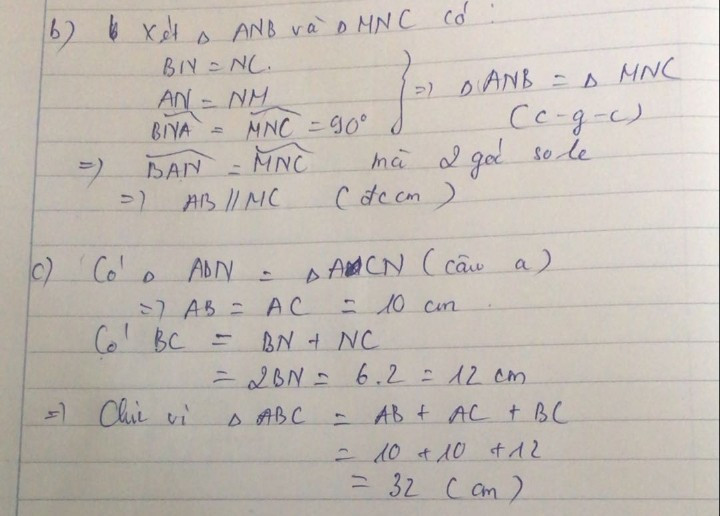 b) Xét △ ANB và △ MNC có :
BN = NC.
AN = NM
BNA = MNC = 90° } => △ ANB = △ MNC
(c-g-c)
=> BAN = MNC mà 2 góc so le
=> AB // MC (đccm)
c) Có △ ABN = △ ACN (câu a)
=> AB = AC = 10 cm
Có BC = BN + NC
= 2BN = 6.2 = 12 cm
=> Chu vi △ ABC = AB + AC + BC
= 10 + 10 + 12
= 32 (cm)